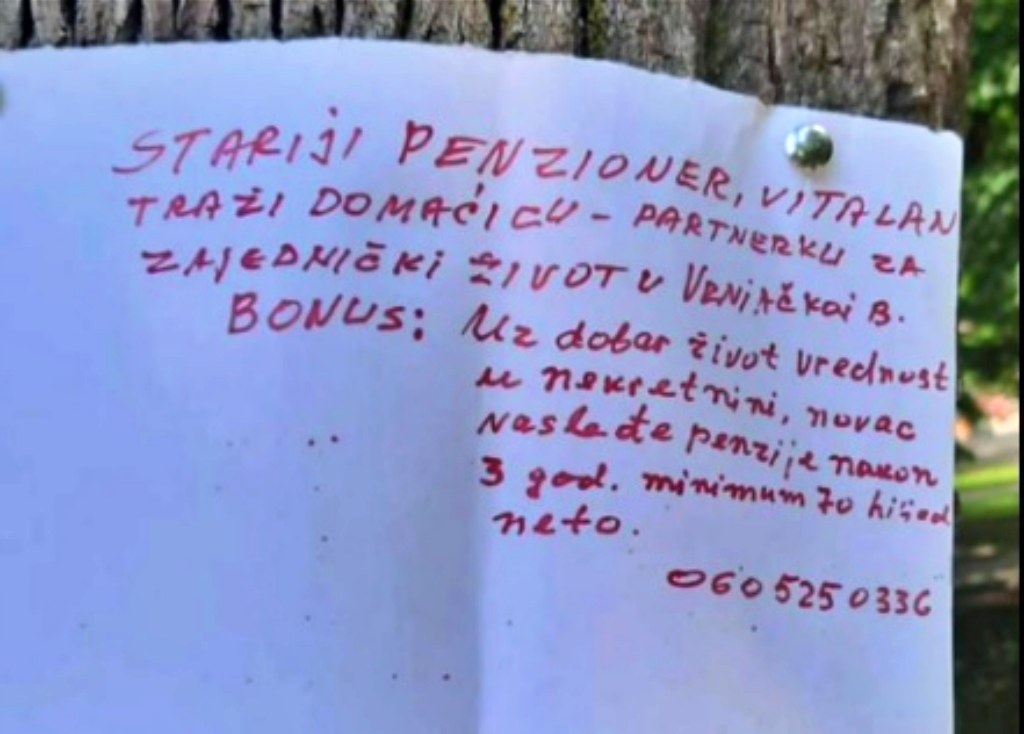 STARIJI PENZIONER, VITALAN
TRAŽI DOMAĆICU - PARTNERKU ZA
ZAJEDNIČKI ŽIVOT U VRNJAČKOJ B.
BONUS: Uz dobar život vrednost
u nekretnini, novac
nasleđe penzije nakon
3 god. minimum 70 hiljad
neto.
060 525 0336